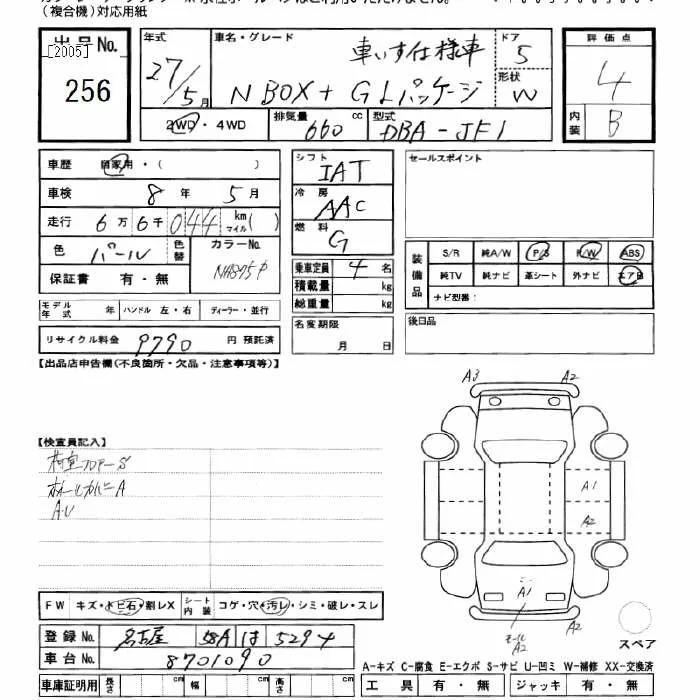 (複合機)対応用紙
出品No.
[2005]
256
年式
27/5月
車名・グレード
車いす仕様車
N BOX + G Lパッケージ
ドア
5
形状
W
評価点
4
内装
B
2WD・4WD
排気量
660 cc
型式
DBA-JF1
車歴 自家用・( )
車検 8年 5月
走行 6万6千044 km マイル( )
色 パール
色替
カラーNo.
NH875P
保証書 有・無
シフト
IAT
冷房
AAC
燃料
G
乗車定員 4名
積載量 kg
総重量 kg
セールスポイント
装備品
S/R 純A/W P/S P/W ABS
純TV 純ナビ 革シート 外ナビ エアB
ナビ型番:
モデル年式 年 ハンドル 左・右 ディーラー・並行
リサイクル料金 9790 円 預託済
名変期限
月 日
後日品
【出品店申告欄(不良箇所・欠品・注意事項等)】
A3 A2
【検査員記入】
荷室フロアーS
A.U
A1
A2
A1
A2
A2
FW キズ・トビ石・割レX
シート内装 コゲ・穴・汚レ・シミ・破レ・スレ
スペア
登録No. 名古屋 58A は 5294
車台No. 8701090
A-キズ C-腐食 E-エクボ S-サビ U-凹ミ W-補修 XX-交換済
車庫証明用 長さ cm 幅 cm 高さ cm
工具 有・無 ジャッキ 有・無